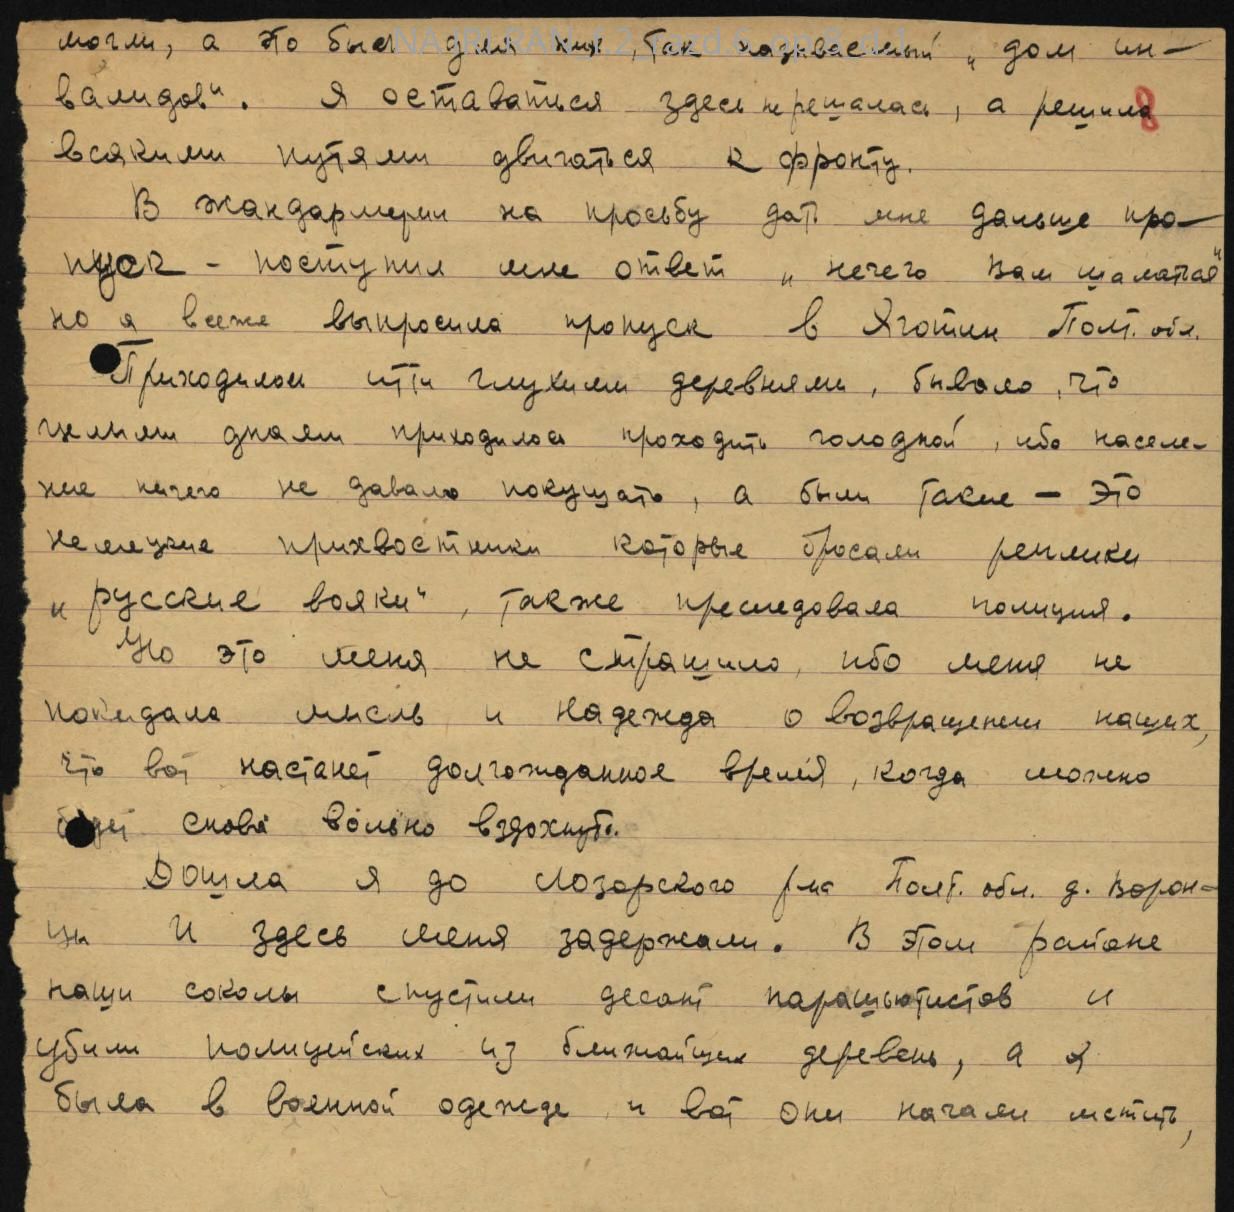 могли, а это был для них, так называемый „дом ин-
валидов“. Я оставаться здесь не решалась, а решила
8
всякими путями двигаться к фронту.
В жандармерии на просьбу дать мне дальше про-
пуск - поступил мне ответ „нечего вам шататся“
но я всеже выпросила пропуск в Яготин Полт. обл.
Приходилось итти глухими деревнями, бывало, что
целыми днями приходилось проходить голодной, ибо населе-
ние ничего не давало покушать, а были такие — это
немецкие прихвостники которые бросали реплики
„русские вояки“, также преследовала полиция.
Но это меня не страшило, ибо меня не
покидала мысль и надежда о возвращении наших,
что вот настанет долгожданное время, когда можно
будет снова вольно вздохнуть.
Дошла я до Лозарского р-на Полт. обл. д. Ворон-
цы и здесь меня задержали. В этом районе
наши соколы спустили десант парашьютистов и
убили полицейских из ближайших деревень, а я
была в военной одежде и вот они начали мстить,